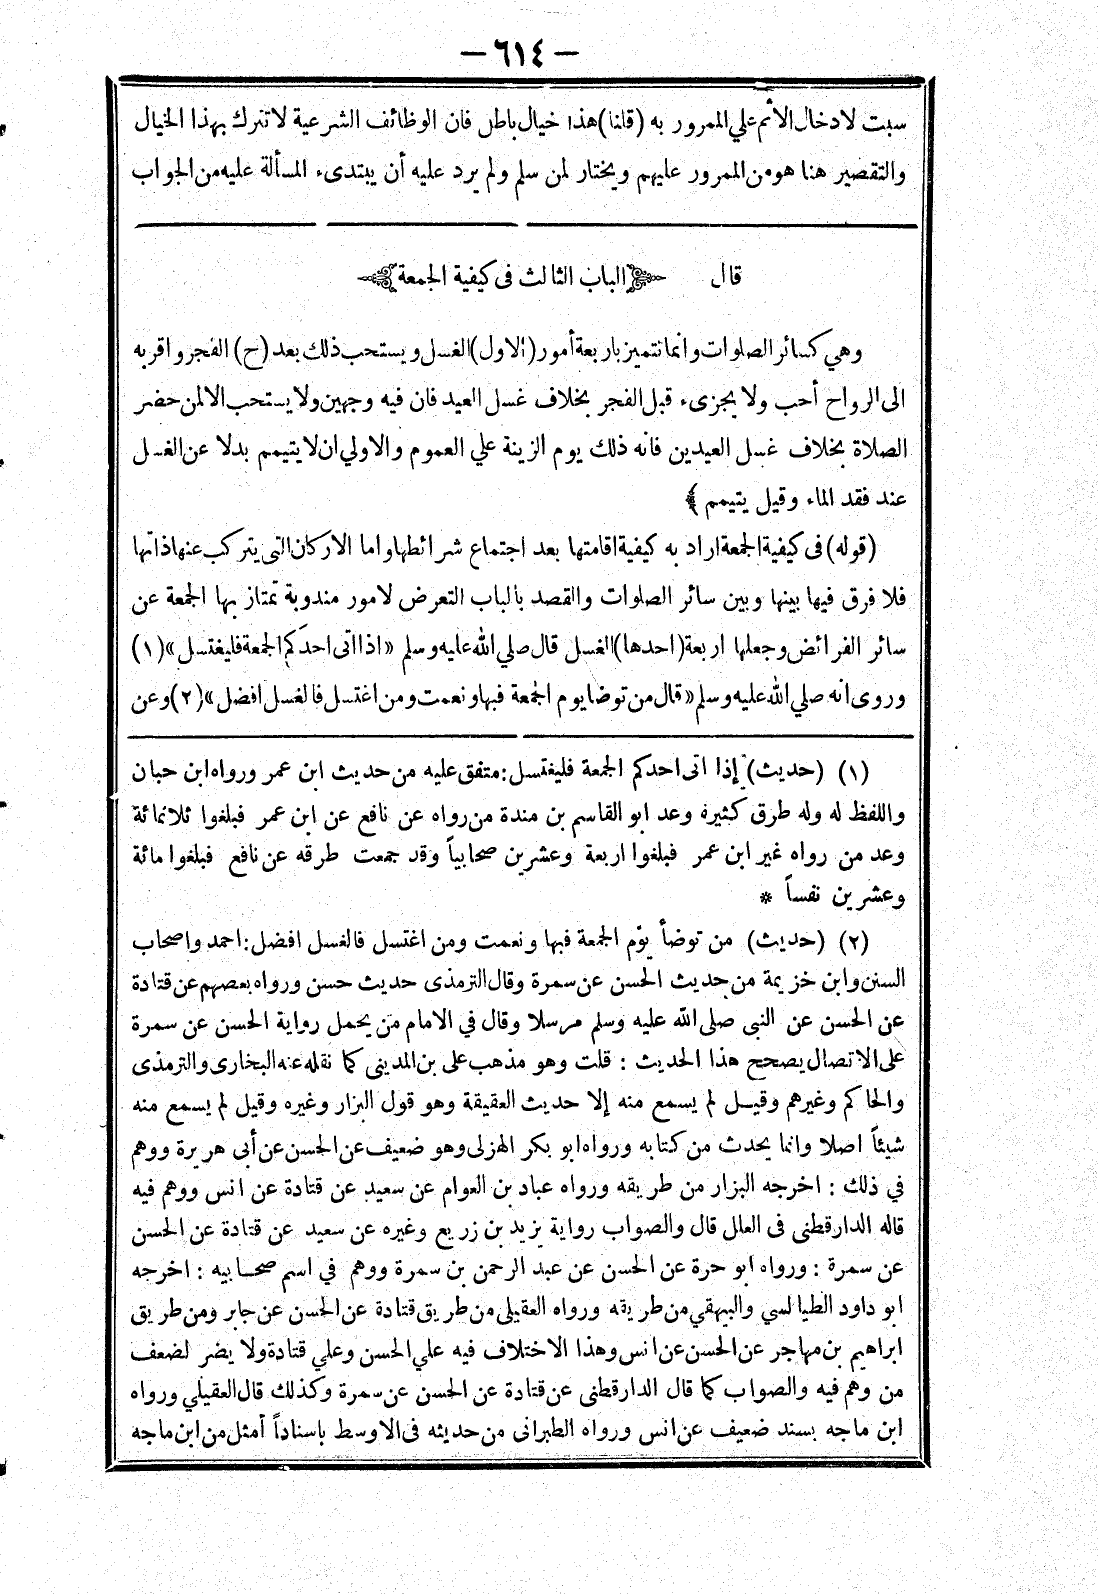 — ٦١٤ —
سبت لادخال الأثم علي الممرور به (قلنا) هذا خيال باطل فان الوظائف الشرعية لا تترك بهذا الخيال
والتقصير هنا هو من الممرور عليهم ويختار لمن سلم ولم يرد عليه أن يبتدىء المسألة عليه من الجواب
قال ﴿الباب الثالث فى كيفية الجمعة﴾
وهي كسائر الصلوات وانما تتميز باربعة أمور (الاول) الغسل ويستحب ذلك بعد (ح) الفجر واقربه
الى الرواح أحب ولا يجزىء قبل الفجر بخلاف غسل العيد فان فيه وجهين ولا يستحب الا لمن حضر
الصلاة بخلاف غسل العيدين فانه ذلك يوم الزينة علي العموم والاولي ان لا يتيمم بدلا عن الغسل
عند فقد الماء وقيل يتيمم ﴾
(قوله) فى كيفية الجمعة اراد به كيفية اقامتها بعد اجتماع شرائطها واما الاركان التى يتركب عنها ذاتها
فلا فرق فيها بينها وبين سائر الصلوات والقصد بالباب التعرض لامور مندوبة تمتاز بها الجمعة عن
سائر الفرائض وجعلها اربعة (احدها) الغسل قال صلي الله عليه وسلم «اذا اتى احدكم الجمعة فليغتسل» (١)
وروى انه صلي الله عليه وسلم «قال من توضا يوم الجمعة فبها ونعمت ومن اغتسل فالغسل افضل» (٢) وعن
(١) (حديث) إذا اتى احدكم الجمعة فليغتسل: متفق عليه من حديث ابن عمر ورواه ابن حبان
واللفظ له وله طرق كثيرة وعد ابو القاسم بن مندة من رواه عن نافع عن ابن عمر فبلغوا ثلاثمائة
وعد من رواه غير ابن عمر فبلغوا اربعة وعشرين صحابياً وقد جمعت طرقه عن نافع فبلغوا مائة
وعشرين نفساً *
(٢) (حديث) من توضأ يوم الجمعة فبها ونعمت ومن اغتسل فالغسل افضل: احمد واصحاب
السنن وابن خزيمة من حديث الحسن عن سمرة وقال الترمذى حديث حسن ورواه بعضهم عن قتادة
عن الحسن عن النبى صلى الله عليه وسلم مرسلا وقال في الامام من يحمل رواية الحسن عن سمرة
على الاتصال يصحح هذا الحديث: قلت وهو مذهب على بن المدينى كما نقله عنه البخارى والترمذى
والحاكم وغيرهم وقيل لم يسمع منه إلا حديث العقيقة وهو قول البزار وغيره وقيل لم يسمع منه
شيئاً اصلا وانما يحدث من كتابه ورواه ابو بكر الهزلى وهو ضعيف عن الحسن عن أبى هريرة ووهم
في ذلك: اخرجه البزار من طريقه ورواه عباد بن العوام عن سعيد عن قتادة عن انس ووهم فيه
قاله الدارقطنى فى العلل قال والصواب رواية يزيد بن زريع وغيره عن سعيد عن قتادة عن الحسن
عن سمرة: ورواه ابو حرة عن الحسن عن عبد الرحمن بن سمرة ووهم في اسم صحابيه: اخرجه
ابو داود الطيالسي والبيهقي من طريقه ورواه العقيلى من طريق قتادة عن الحسن عن جابر ومن طريق
ابراهيم بن مهاجر عن الحسن عن انس وهذا الاختلاف فيه علي الحسن وعلي قتادة ولا يضر لضعف
من وهم فيه والصواب كما قال الدارقطنى عن قتادة عن الحسن عن سمرة وكذلك قال العقيلي ورواه
ابن ماجه بسند ضعيف عن انس ورواه الطبرانى من حديثه فى الاوسط باسناداً أمثل من ابن ماجه